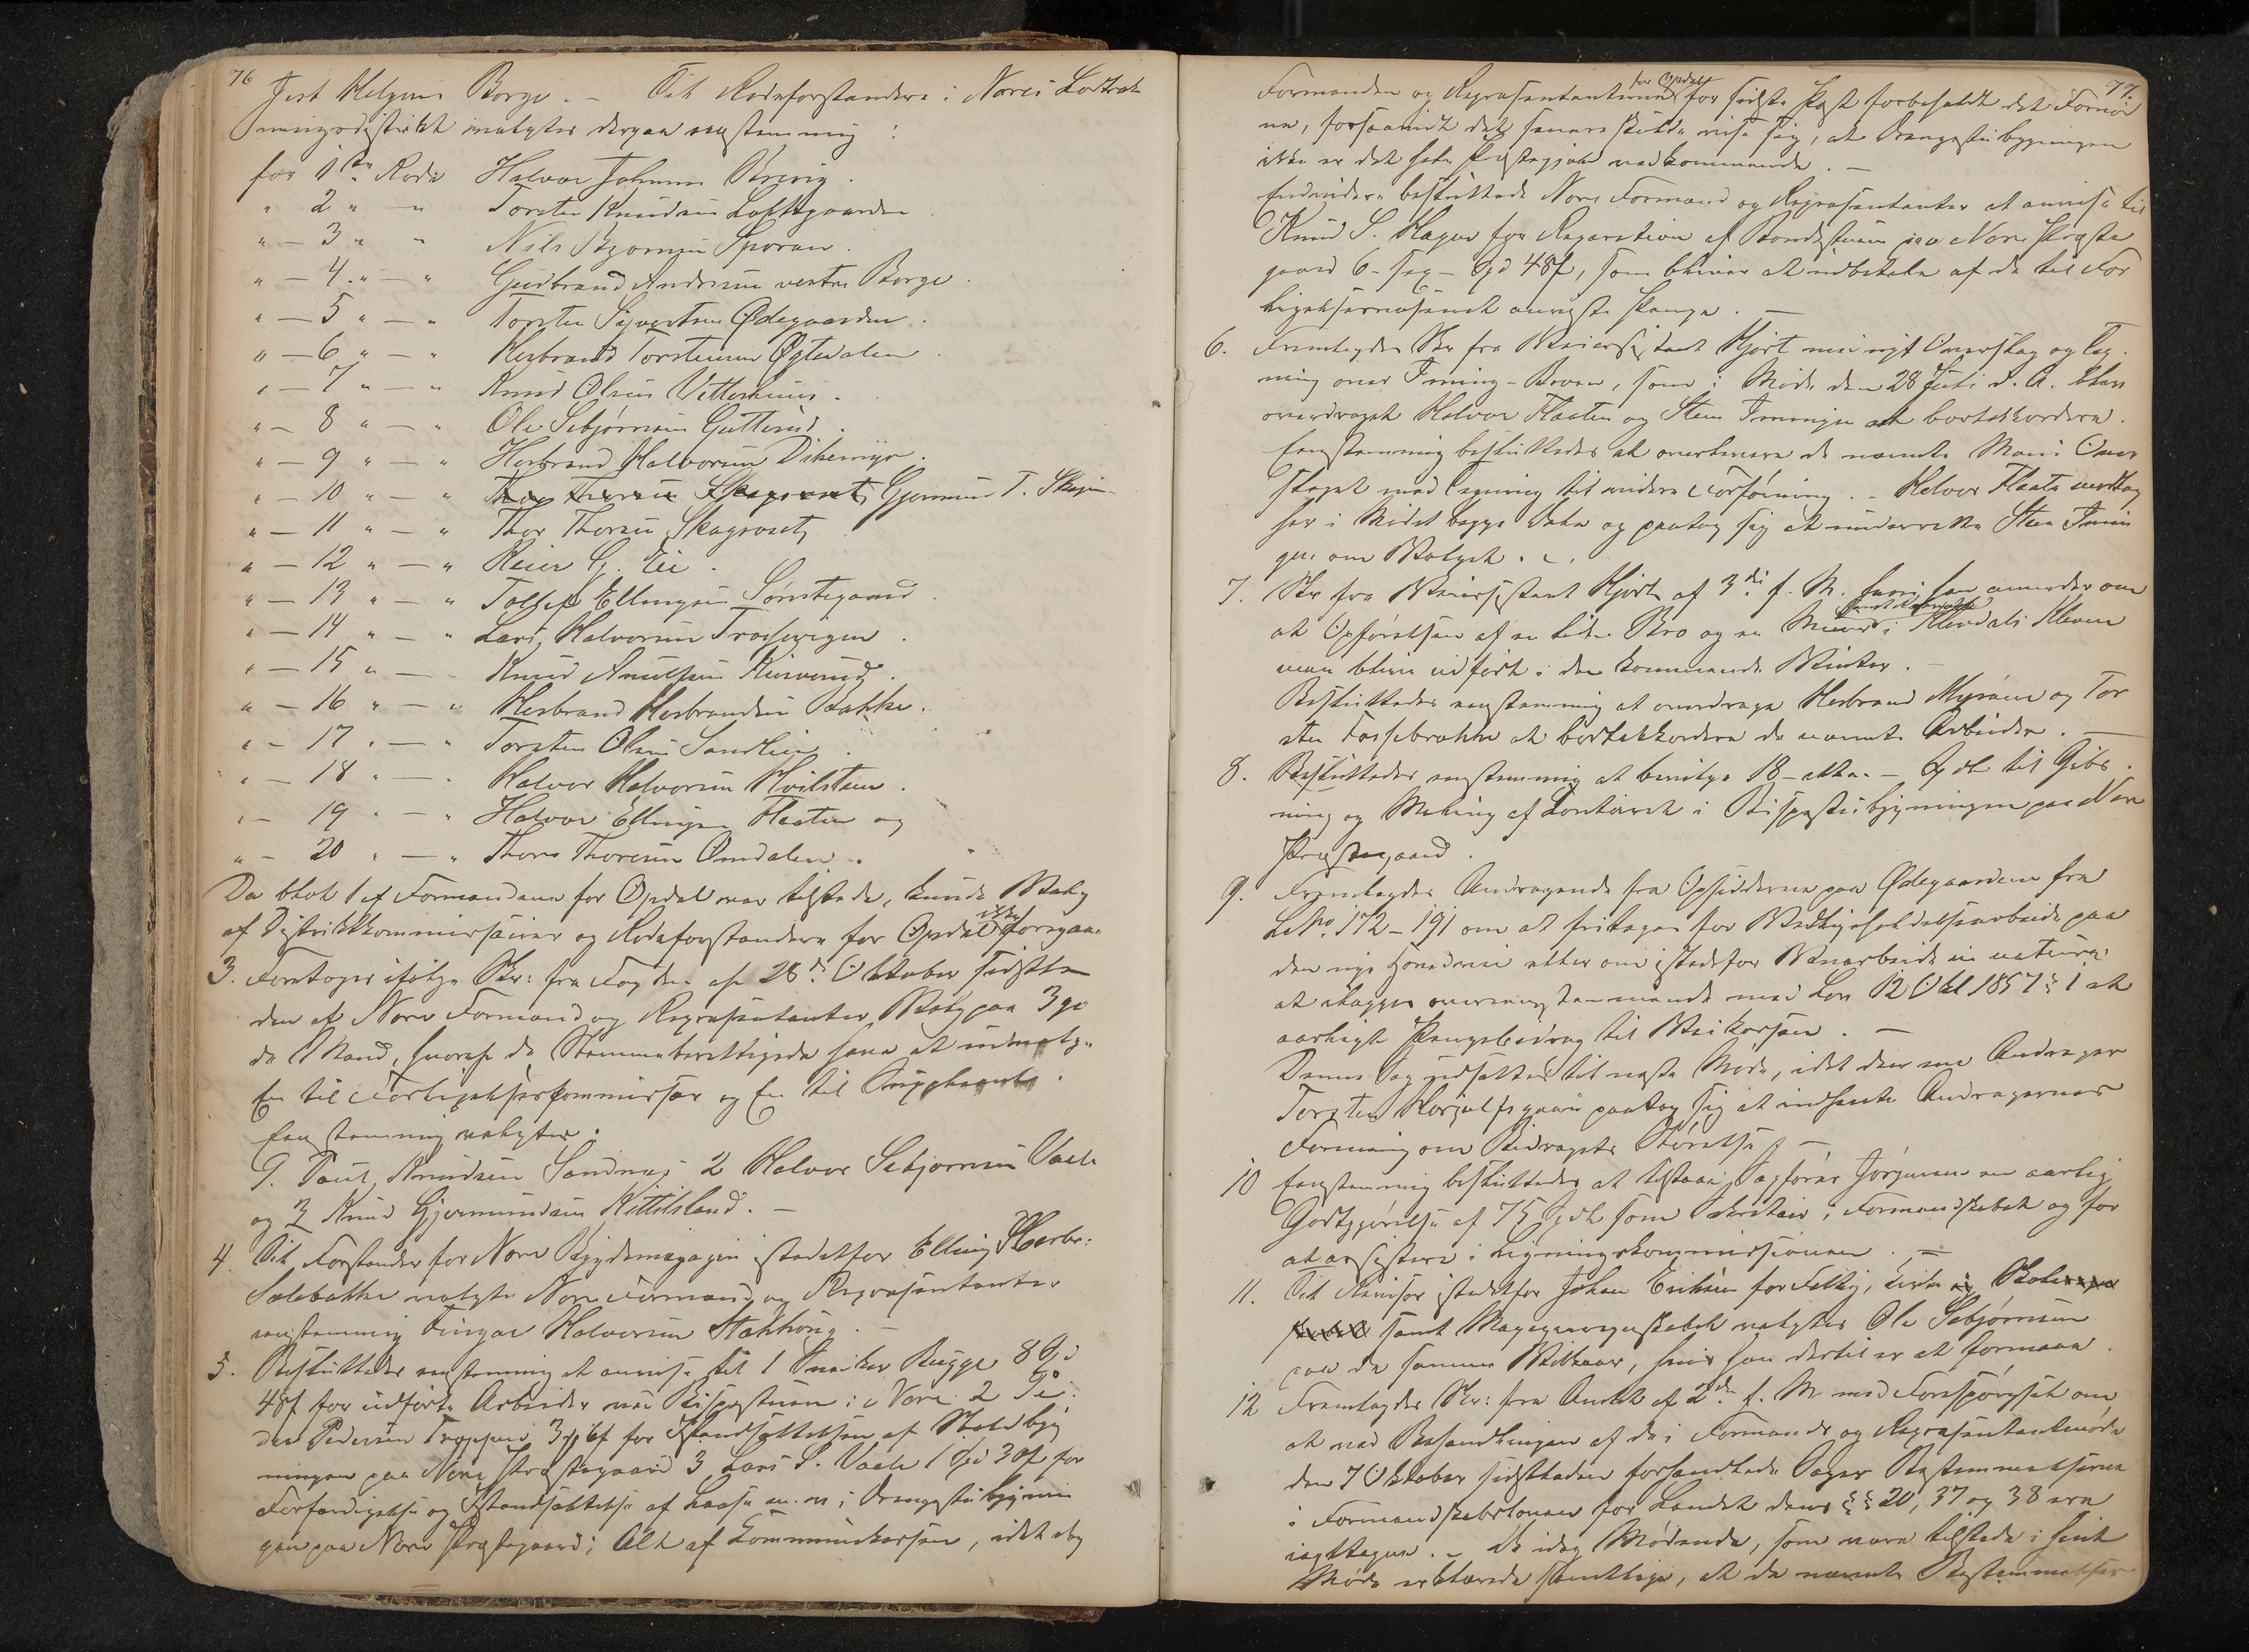 76
Jost Helgesen Borge. – Til Rodeforstandere i Nores Lodtræk-
ningsdistrikt valgtes derpaa enstemmig:
for 1ste Rode Halvor Johnsen
" 2 " — " Torsten Knudsen Loftsgaarden
" — 3 " " Nils Bjørnsen Sporan.
" — 4 " — " Gudbrand Andersen vestre Borge.
" — 5 " — " Torsten Sjvertsen Ødegaarden.
" — 6 " — " Herbrand Torstensen Øgtedalen.
" — 7 " — " Knud Olsen Vetterhuus.
" — 8 " — " Ole Sebjørnsen Gutterud.
" — 9 " — " Herbrand Halvorsen Dikemyr.
" — 10 " — " Gjermund T.
" — 11 " — " Thor Thorsen Skagsoset
" — 12 " — " Reier G. Ei.
" — 13 " — " Tollef Ellingsen Sønstegaard.
" — 14 " — " Lars Halvorsen
" — 15 " — Knud
" — 16 " — " Herbrand Herbrandsen Bakke.
" — 17 " — " Torsten Olsen Sandlien.
" — 18 " — " Halvor Halvorsen Hvilsteen.
" — 19 " — " Halvor Ellingsen Flaaten og
" — 20 " — " Thore Thoresen Omdalen.
Da blot 1 af Formændene for Opdal var tilstede, kunde Valg
af Distriktkommissairer og Rodeforstandere for Opdal ikke foregaa.
3. Foretoges ifølge Skr: fra Fogden af 28de Oktober sidstle-
den af Nore Formænd og Repræsentanter Valg paa 3ge
de Mænd, hvoraf de Stemmeberettigede have at udvælge
En til Forligelseskommissær og En til Suppleant.
Eenstemmig valgtes:
1. Paul Knudsen Sandnes 2 Halvor Sebjørnsen Vaale
og 3 Knud Gjermundsen Kittilsland. –
4. Til Forstander for Nore Bygdemagazin istedetfor Elling Herbr:
Solebakke valgte Nore Formænd og Repræsentanter
enstemmig Fingar Halvorsen Stakkeng. –
5. Besluttedes enstemmig at anvise til 1 Snedker Bugge 8 Spd
48ß for udførte Arbeider ved Bispestuen i Nore 2 Pe-
der Pedersen 3 for Istandsættelse af
ningen paa Nore Præstegaard 3 Lars S. Vaale 1 Spd 30ß for
Forfærdigelse og Istandsættelse af Laase m. m. i Drengestubygnin
gen paa Nore Præstegaard; Alt af Kommunekassen, idet dog
77.
Formanden og Repræsentanterne for Opdal for sidste Post forbeholdt det Fornød
ne, forsaavidt det senere skulde vise sig, at Drengestubygningen
ikke er det hele Præstegjæld vedkommende. –
Endvidere besluttede Nore Formænd og Repræsentanter at anvise til
Knud S. Hagen for Reparation af Bordstuen paa Nore Præste
gaard 6 – sex – Spd 48ß, som bliver at indbetale af de til For
ligelsesvæsenet anviste Penge. –
6. Fremlagdes Skr fra Veiassistent Hjort med nyt Overslag og Teg-
ning over Iming-Broen, som i Møde den 28 Juli d. A. blev
overdraget Halvor Flaaten og Steen Imingen at bortakkordere.
Eenstemmig besluttedes at overlevere de nævnte Mænd Over
slaget med Tegning til videre Forføining. – Halvor Flaata modtog
her i Mødet begge Dele og paatog sig at underrette Steen Imin
gen om Valget.
7. Skr fra Veiassistent Hjort af 3die f. M. hvori han anmoder om
at Opførelsen af en liden Bro og en Muur i Klevdals Kleven
maa blive udført i den kommende Vinter. –
Besluttedes enstemmig at overdrage Herbrand Myraen og Tor
sten Fossebrække at bortakkordere de nævnte Arbeider. –
8. Besluttedes enstemmig at bevilge 18 – atten – Spdl til Gibs-
ning og Maling af i Bispestubygningen paa Nore
Præstegaard.
9. Fremlagdes Andragende fra Opsidderne paa Ødegaardene fra
L.No. 172 – 191 om at fritages for Vedligeholdelsesarbeide paa
den nye Hovedvei eller om istedetfor Veiarbeide in natura
at erlægge overensstemmende med Lov 12 Okt 1857 § 1 et
aarligt Pengebidrag til Veikassen. –
Denne Sag udsattes til næste Møde, idet den ene Andrager
Torsten paatog sig at indhente Andragernes
Formening om Bidragets Størrelse. –
10 Eenstemmig besluttedes at tilstaa Sagfører Jørgensen en aarlig
Godtgjørelse af 75 Spdl som Sekretær i Formandskabet og for
at assistere i Ligningskommissionen. –
11. Til Revisor istedetfor Johan Eriksen for Fattig, Kirke
samt Magazinregnskabet valgtes Ole Sebjørnsen
paa de samme Vilkaar, hvis han dertil er at formaa.
12 Fremlagdes Skr: fra Amtet af 2den f. M. med Forespørgsel om
at ved Behandlingen af de i Formands og Repræsentantmøde
den 7 Oktober sidstleden forhandlede Sager Bestemmelserne
i Formandskabsloven for Landet dens §§ 20, 37 og 38 ere
iagttagne. – De idag Mødende, som vare tilstede i hint
Møde erklærede samtlige, at de nævnte Bestemmelser